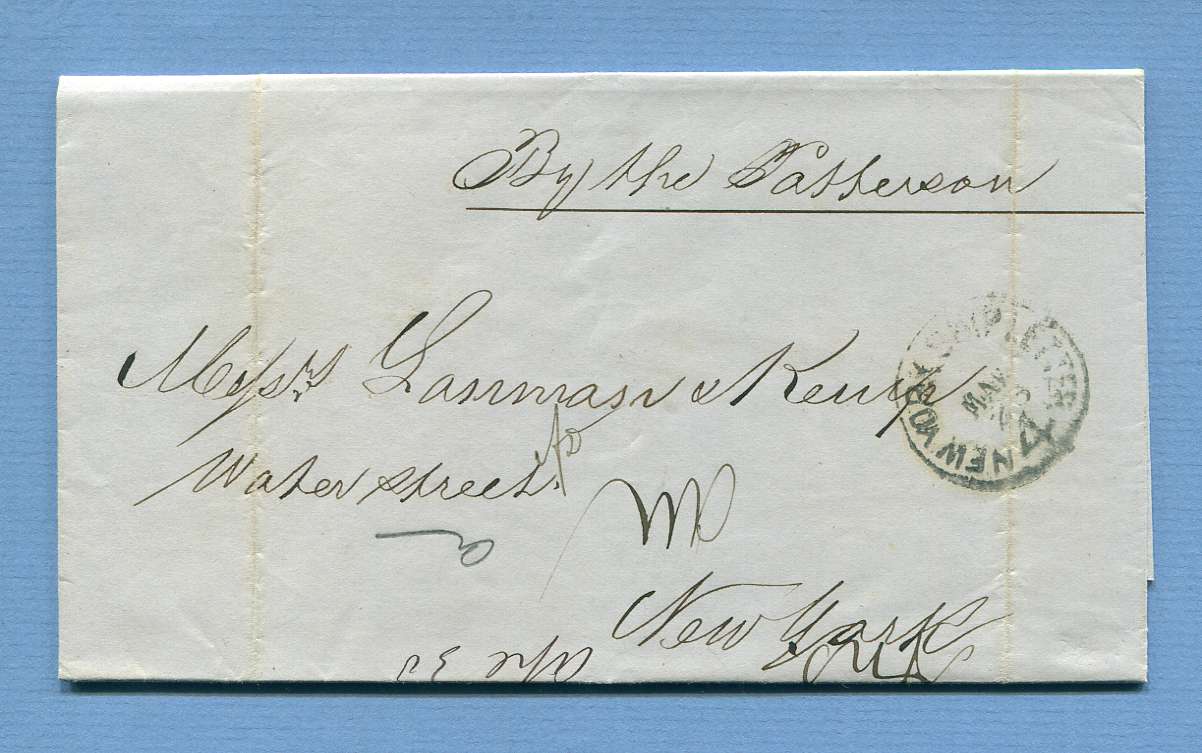 By the Patterson
Messrs Lanman & Kemp
Water street
New York
NEW YORK SHIP LETTER
MAR